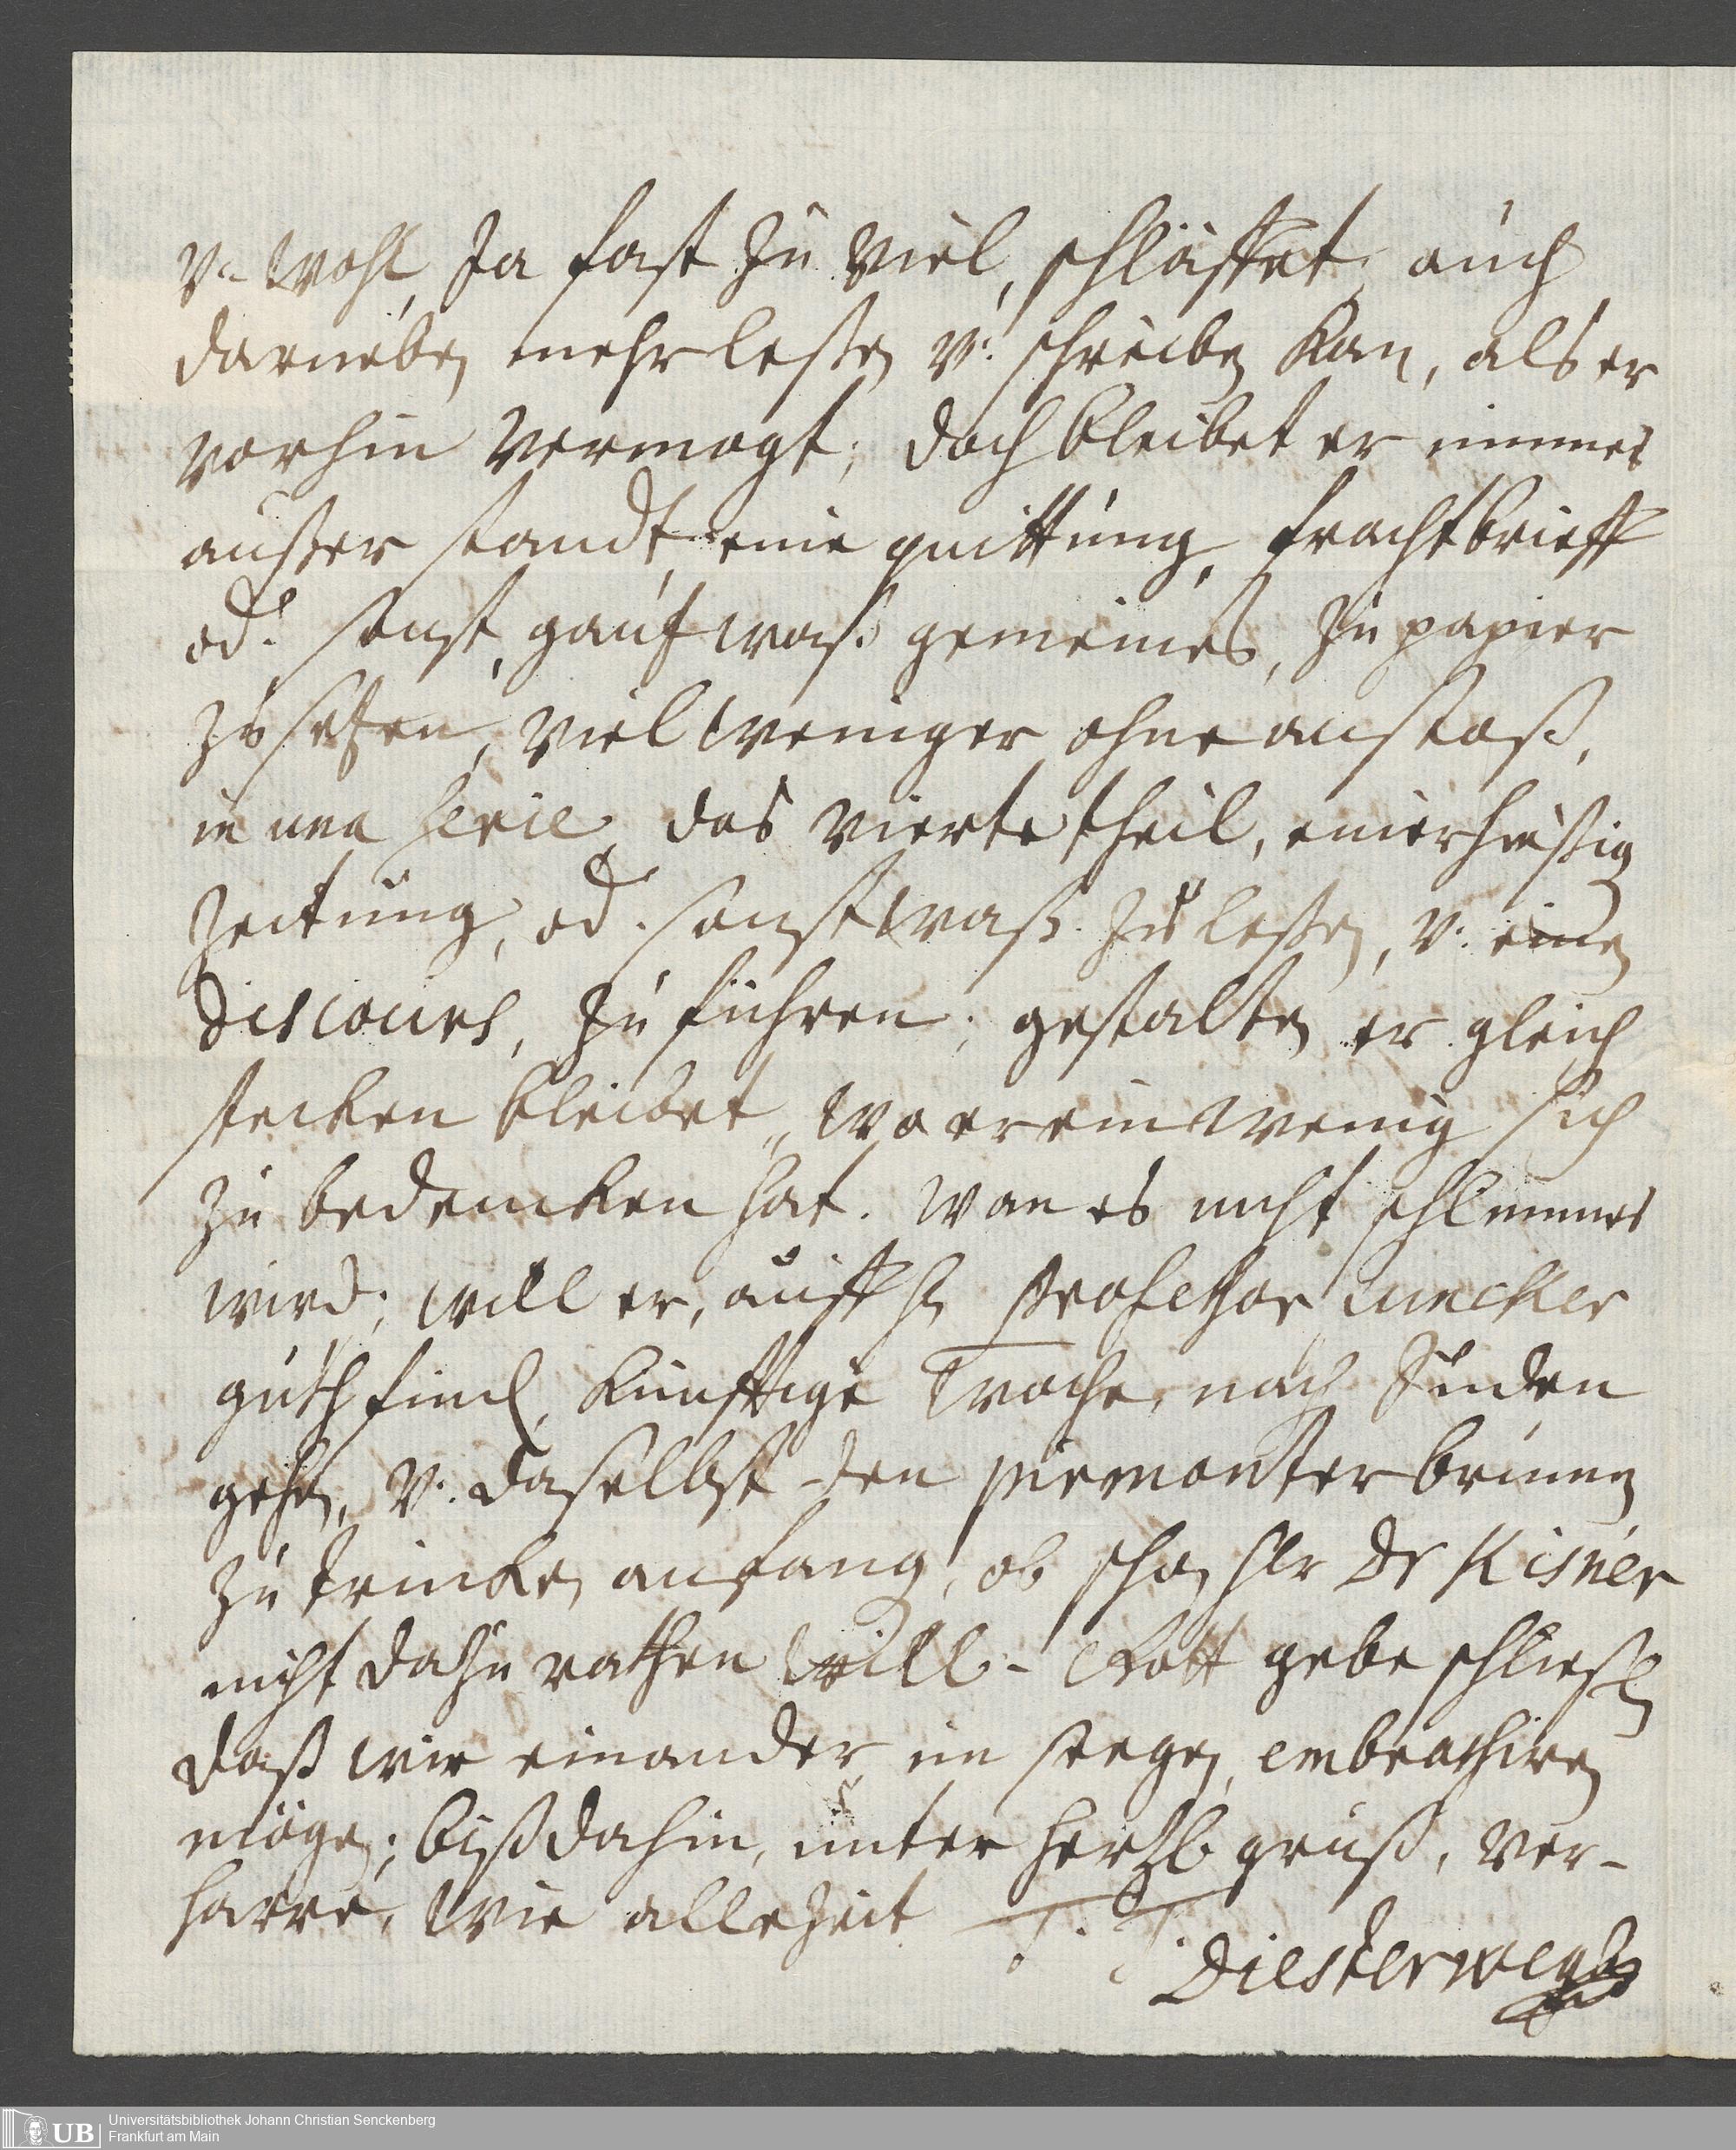 v. wohl, ja fast zu viel, schläffet, auch
darneben mehr lessen v. schreiben kan, als er
vorhin vermogt; doch bleibet er immer
ausser standt, eine quittung, frachtbrieff
od. sonst, gantz was gemeines, zu papier
zu setzen, viel weniger ohne anstoß,
in una serie, das vierte theil, einer hiesigen
zeitung, od. sonst was zu lessen, v. einen
discours, zu führen; gestalten er gleich
stecken bleibet, wo er ein wenig sich
zu bedencken hat. wan es nicht schlimmer
wird; will er, auff H. Professor Juncker
guthfind, künfftige woche, nach Linden
gehen, v. daselbst den piermonter brunnen
zu trincken anfang, ob schon Hr Dr Kisner
nicht dahin rathen will. Gott gebe schließl.
daß wir einander im seegen embrathiren
mögen; biß dahin, unter hertzl. gruß, ver-
harre, wie allezeit
Diesterweg
Universitätsbibliothek Johann Christian Senckenberg
Frankfurt am Main
UB